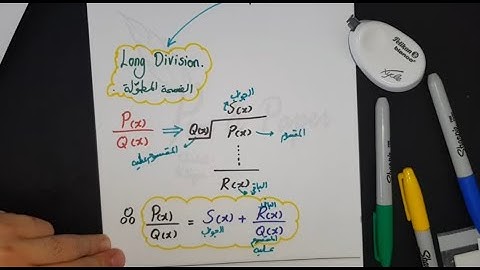 Long Division.
القسمة المطولة
الجواب
S(x)
P(x) / Q(x) ⇒ Q(x) P(x) المقسوم
المقسوم عليه
R(x) الباقي
∴ P(x) / Q(x) = S(x) + R(x) / Q(x)
الباقي
الجواب
المقسوم عليه
Pelikan
blanco
Sharpie
Sharpie
Sharpie